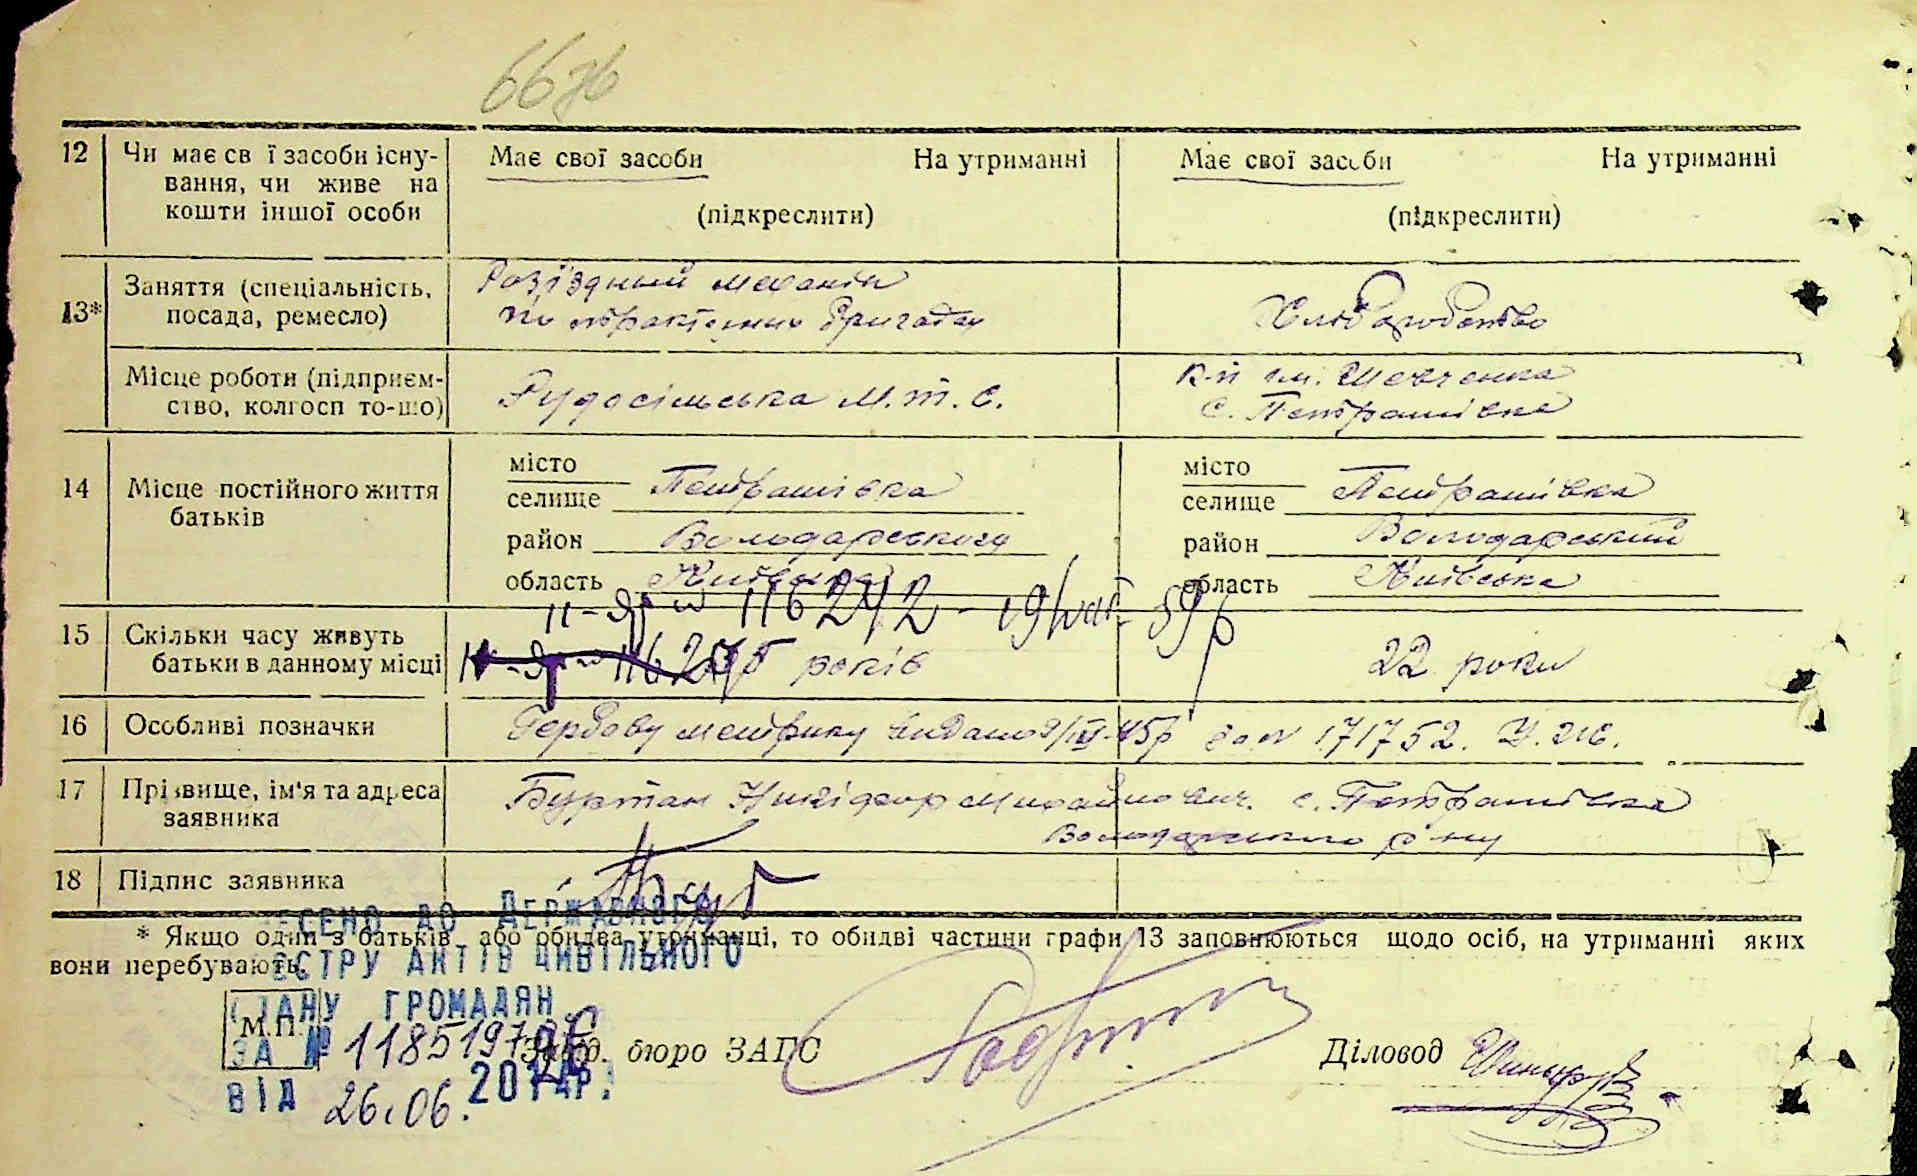 66
12 Чи має св ї засоби існу- Має свої засоби На утриманні Має свої засоби На утриманні
вання, чи живе на
кошти іншої особи (підкреслити) (підкреслити)
13* Заняття (спеціальність, Роз'їздний механік
посада, ремесло) по тракторних бригадах Хліборобство
Місце роботи (підприєм- Рудосільська М.т.с. к-п ім. Шевченка
ство, колгосп то-що) с. Петрашівка
14 Місце постійного життя місто місто
батьків селище Петрашівка селище Петрашівка
район Володарського район Володарський
область Київська область Київська
11-яр № 116242 - 19/ 59р
15 Скільки часу живуть
батьки в данному місці років 22 роки
16 Особливі позначки Гербову метрику видано 9/ІV-45р за № 171752.
17 Прізвище, ім'я та адреса Буртан Никіфор Михайлович. с. Петрашівка
заявника Володарського р-ну
18 Підпис заявника
ЕСЕНО ДО ДЕРЖАВНОГО
* Якщо один з батьків, або обидва утриманці, то обидві частини графи 13 заповнюються щодо осіб, на утриманні яких
вони перебувають.
ЕСТРУ АКТІВ ЦИВІЛЬНОГО
СТАНУ ГРОМАДЯН
М.П.
ЗА № 1185197 Завід. бюро ЗАГС Діловод
ВІД 26.06. 2014Р.